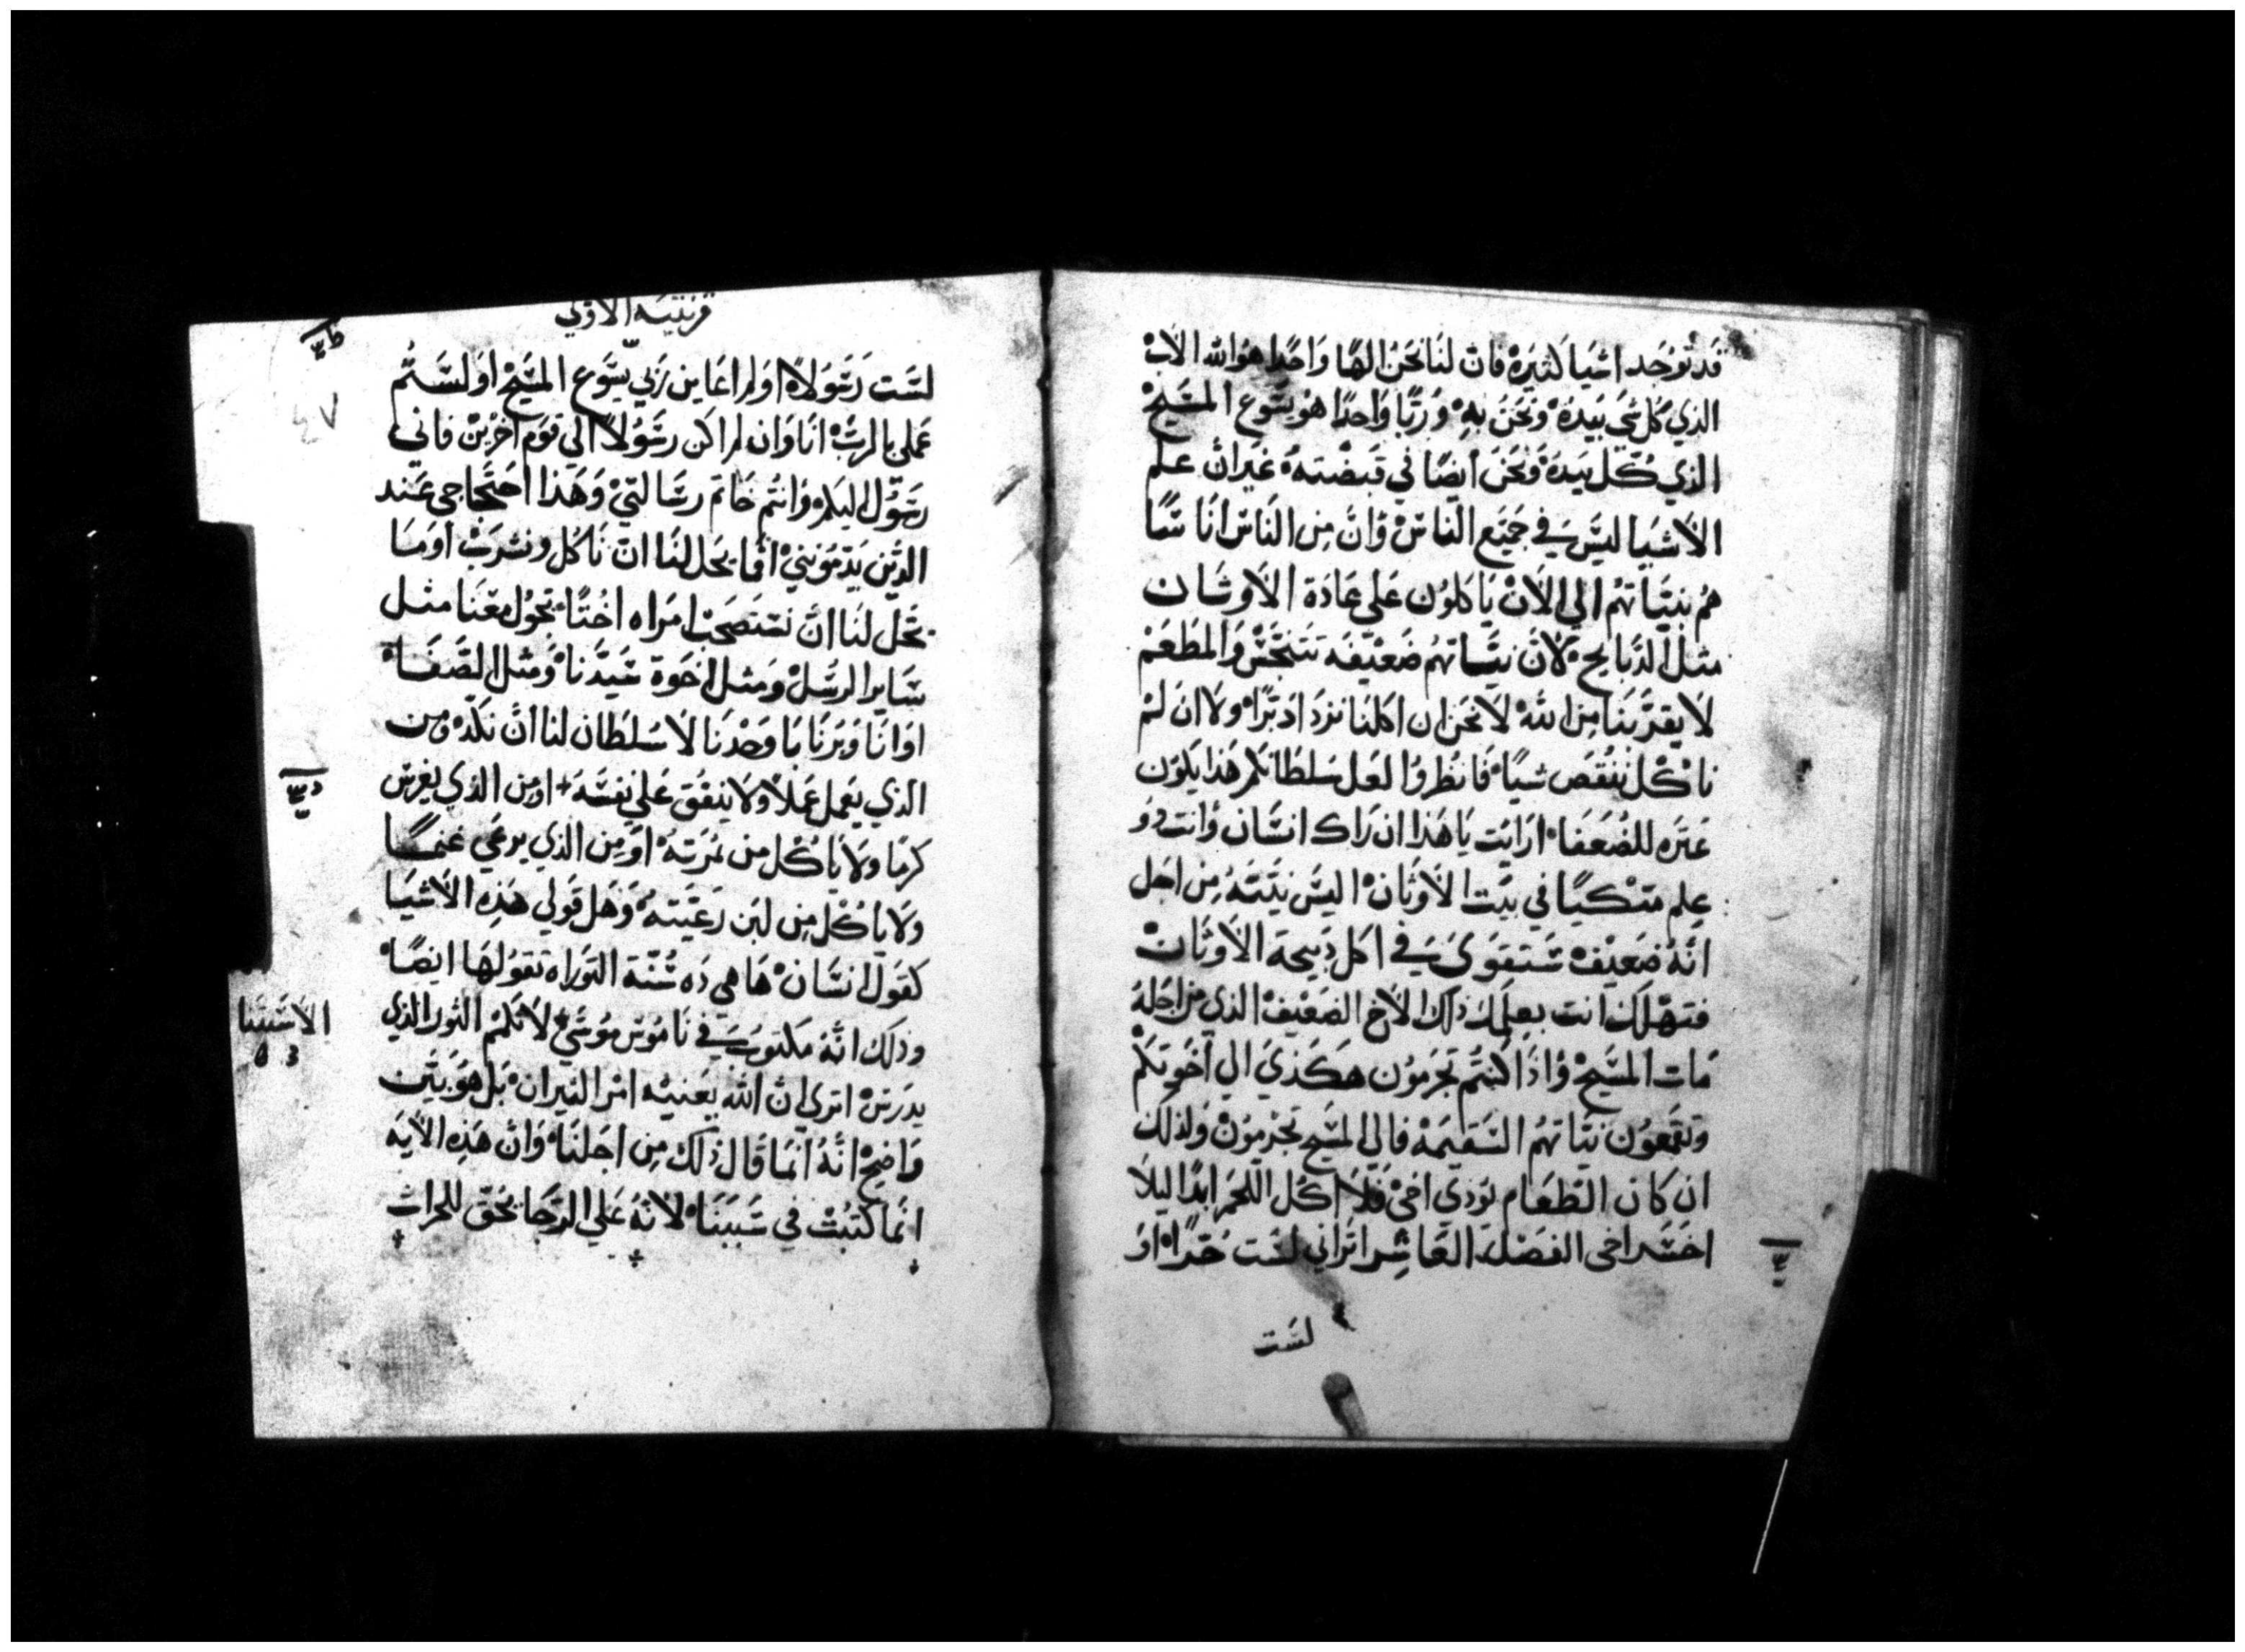 قد توجد اشيا كثيره فان لنا نحن الها واحدا هو الله الاب
الذي كل شي بيده ونحن به وربا واحدا هو يسوع المسيح
الذي كل بيده ونحن ايضا في قبضته غير ان علم
الاشيا ليس في جميع الناس وان من الناس اناسا
هم بنياتهم الي الان ياكلون علي عادة الاوثان
مثل الدبايح لان نياتهم ضعيفه تتنجس والمطعم
لا يقربنا من الله لا نحن ان اكلنا نزداد برا ولا ان لم
ناكل ننقص شيا فانظروا لعل سلطانكم هذا يكون
عثره للضعفا ارايت يا هذا ان راك انسان وانت ذو
علم متكيا في بيت الاوثان اليس نيته من اجل
انه ضعيف ستقوي في اكل دبيحة الاوثان
فتهلك انت بعلمك ذلك الاخ الضعيف الذي من اجله
مات المسيح واذا كنتم تجرمون هكذي الي اخوتكم
وتقمعون نياتهم السقيمه فالي المسيح تجرمون ولذلك
ان كان الطعام يوذي اخي فلا اكل اللحم ابدا ليلا
اخسر اخي الفصل العاشر اتراني لست حرا او
لست
قرنتيه الاولي
لست رسولا او لم اعاين ربي يسوع المسيح او لستم
عملي بالرب انا وان لم اكن رسولا الي قوم اخرين فاني
رسول اليكم وانتم خاتم رسالتي وهذا احتجاجي عند
الذين يدمونني اما يحل لنا ان ناكل ونشرب او ما
يحل لنا ان نستصحب امراه اختا تجول معنا مثل
ساير الرسل ومثل اخوة سيدنا ومثل الصفا
او انا وبرنابا وحدنا لا سلطان لنا ان نكد ومن
الذي يعمل عملا ولا ينفق علي نفسه او من الذي يغرس
كرما ولا ياكل من ثمرته او من الذي يرعي غنما
ولا ياكل من لبن رعيته وهل قولي هذه الاشيا
كقول انسان ها هي ده سنة التوراه تقولها ايضا
وذلك انه مكتوب في ناموس موسي لا تكم الثور الذي
يدرس اتري ان الله يعنيه امر الثيران بل هو بين
واضح انه انما قال ذلك من اجلنا وان هذه الايه
انما كتبت في سببنا لانه علي الرجا يحق للحراث
٤٧